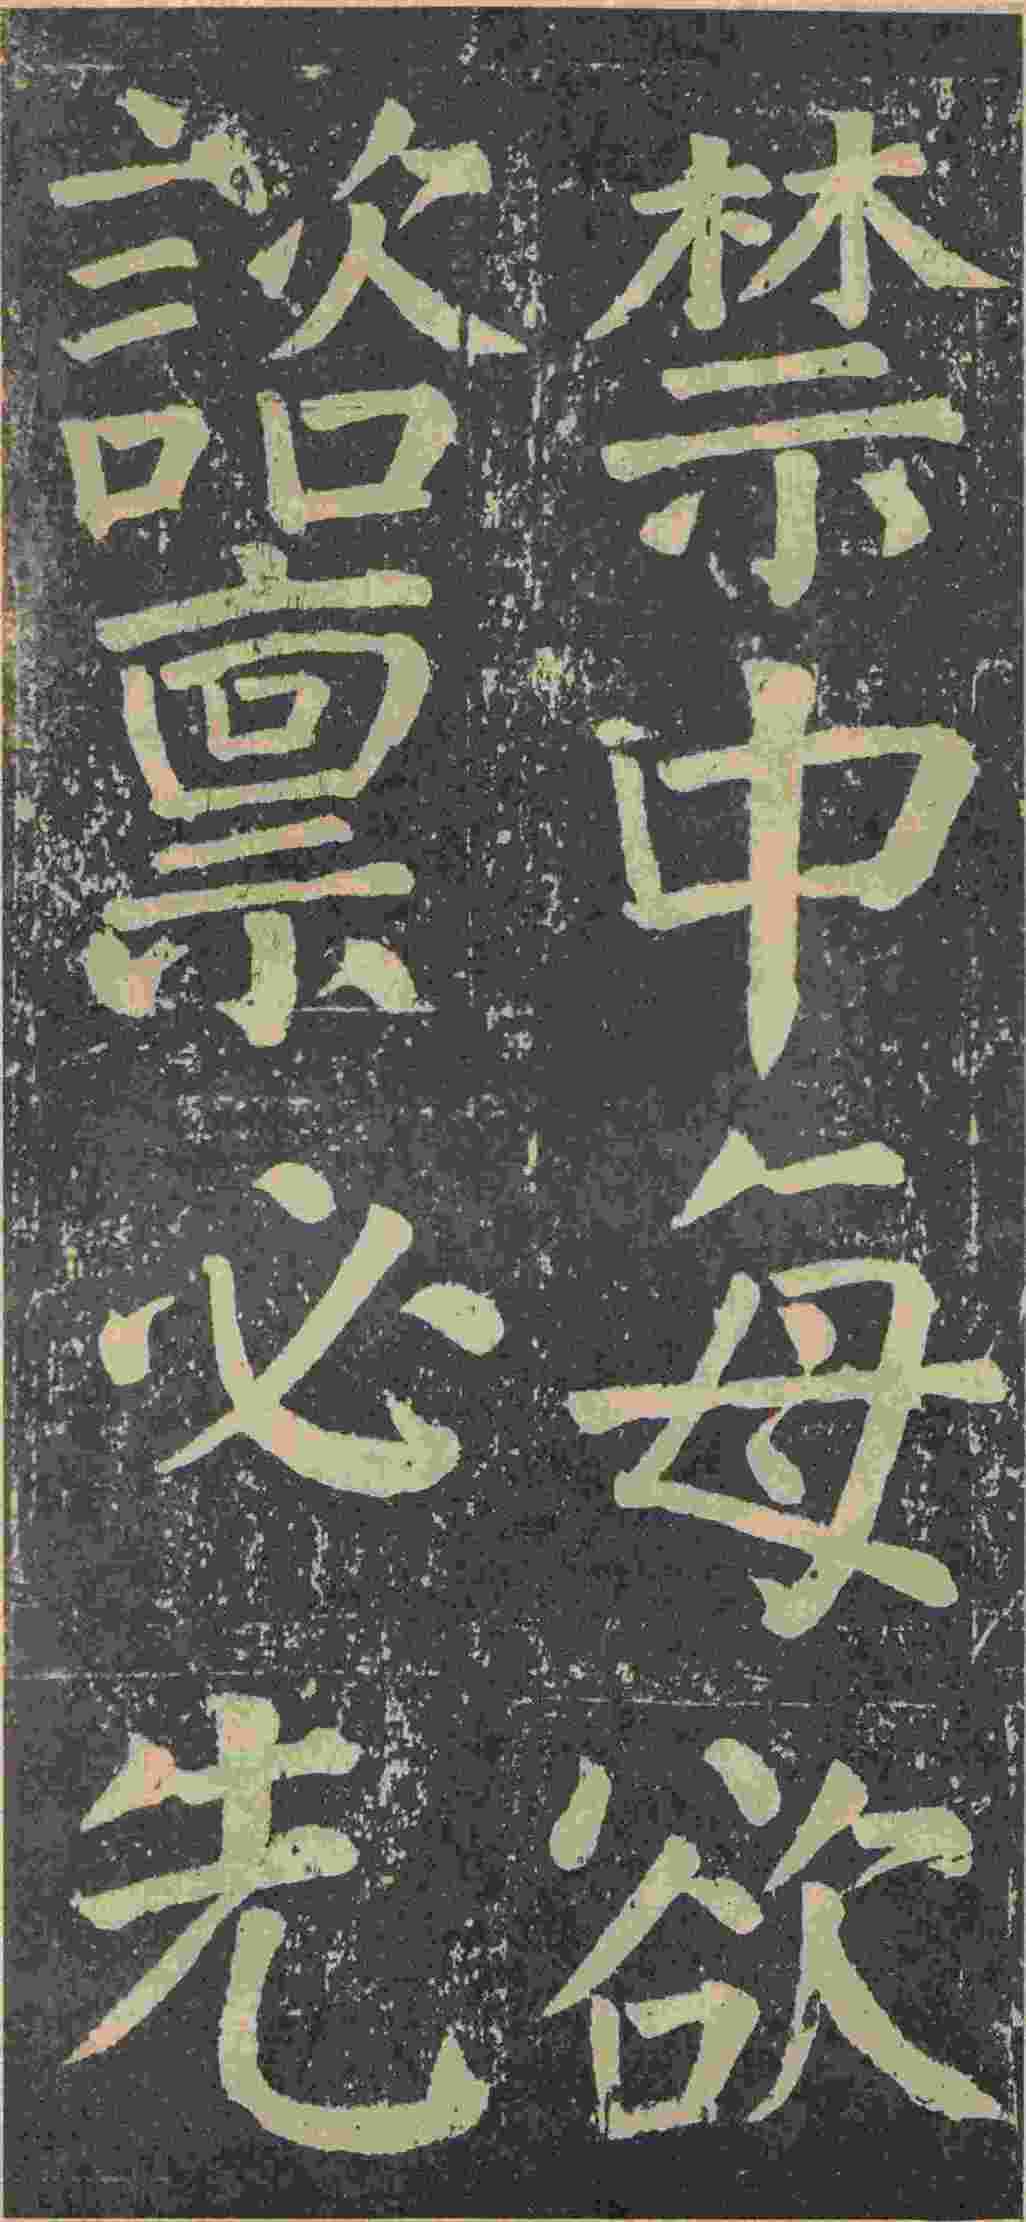 禁中每欲
諮稟必先